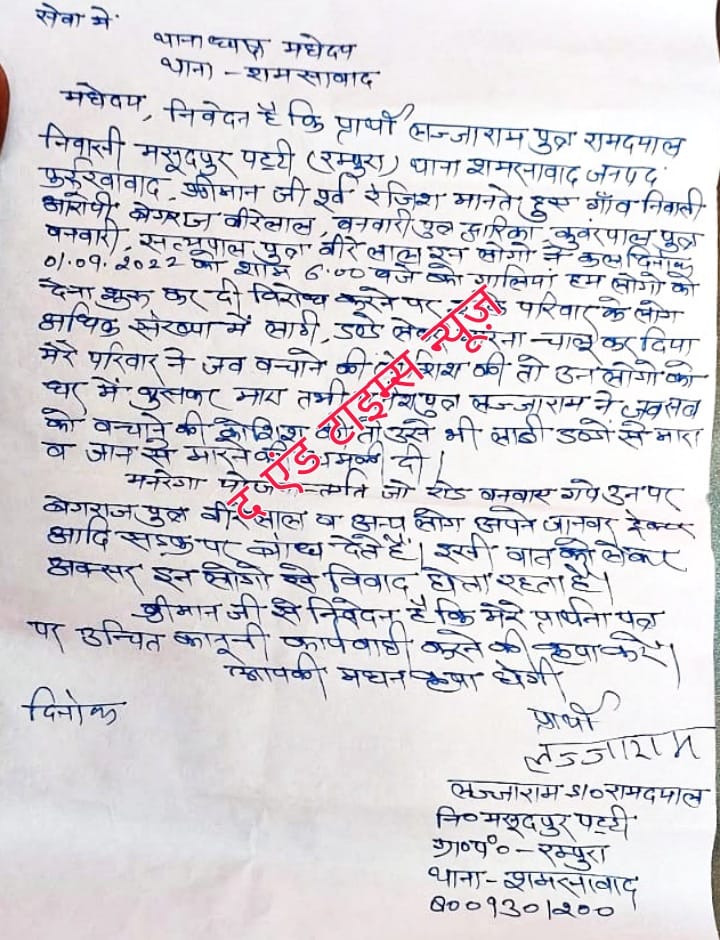 सेवा में
थानाध्यक्ष महोदय
थाना - शमसाबाद
महोदय, निवेदन है कि प्रार्थी लज्जाराम पुत्र रामदयाल
निवासी मसूदपुर पट्टी (रम्पुरा) थाना शमसाबाद जनपद
फर्रुखाबाद, श्रीमान जी पूर्व रंजिश मानते हुए गाँव निवासी
आरोपी बेगराज वीरेलाल, वनवारी पुत्र द्वारिका, कुवंरपाल पुत्र
वनवारी, सत्यपाल पुत्र वीरेलाल इन लोगो ने कल दिनांक
01.09.2022 को शाम 6.00 बजे को गालियां हम लोगों को
देना शुरू कर दी विरोध करने पर परिवार के लोग
अधिक संख्या में लाठी, डण्डे चालू कर दिया
मेरे परिवार ने जब बचाने की कोशिश की तो उन लोगो को
घर में घुसकर मारा तभी पुत्र लज्जाराम ने जब सब
को बचाने की कोशिश की तो उसे भी लाठी डण्डों से मारा
व जान से मारने की धमकी दी।
मनरेगा जो रोड बनवाए गये उन पर
बेगराज पुत्र वीरेलाल व अन्य लोग अपने जानवर ट्रेक्टर
आदि सड़क पर बांध देते हैं। इसी बात को लेकर
अक्सर इन लोगो से विवाद होता रहता है।
श्रीमान जी से निवेदन है कि मेरे प्रार्थना पत्र
पर उचित कानूनी कार्यवाही करने की कृपा करें।
आपकी महान कृपा होगी
दिनांक
प्रार्थी
लज्जाराम
लज्जाराम S/O रामदयाल
नि० मसूदपुर पट्टी
ग्रा०पं० - रम्पुरा
थाना - शमसाबाद
8009301200
द एंड टाइम्स न्यूज़